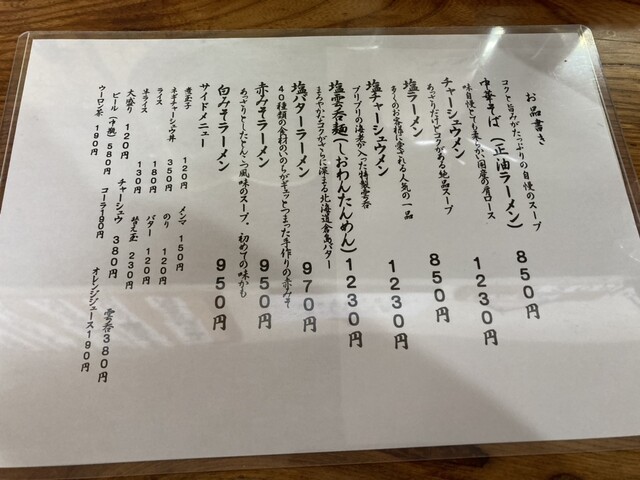 お品書き
コクと旨みがたっぷりの自慢のスープ
中華そば(正油ラーメン) 850円
味自慢とても柔らかい国産の肩ロース
チャーシュウメン 1230円
あっさりだけどコクがある絶品スープ
塩ラーメン 850円
多くのお客様に愛される人気の一品
塩チャーシュウメン 1230円
プリプリの海老が入った特製雲呑
塩雲呑麺(しおわんたんめん) 1230円
まろやかなコクがさらに深まる北海道倉島バター
塩バターラーメン 970円
40種類の食材のいのちがギュッとつまった手作りの赤みそ
赤みそラーメン 950円
あっさりとしたとんこつ風味のスープ、初めての味かも
白みそラーメン 950円
サイドメニュー
煮玉子 120円 メンマ 150円
ネギチャーシュウ丼 350円 のり 120円
ライス 180円 バター 120円
半ライス 130円 替え玉 230円
大盛り 120円 チャーシュウ 380円 雲呑380円
ビール(中瓶) 580円 コーラ190円 オレンジジュース190円
ウーロン茶 190円